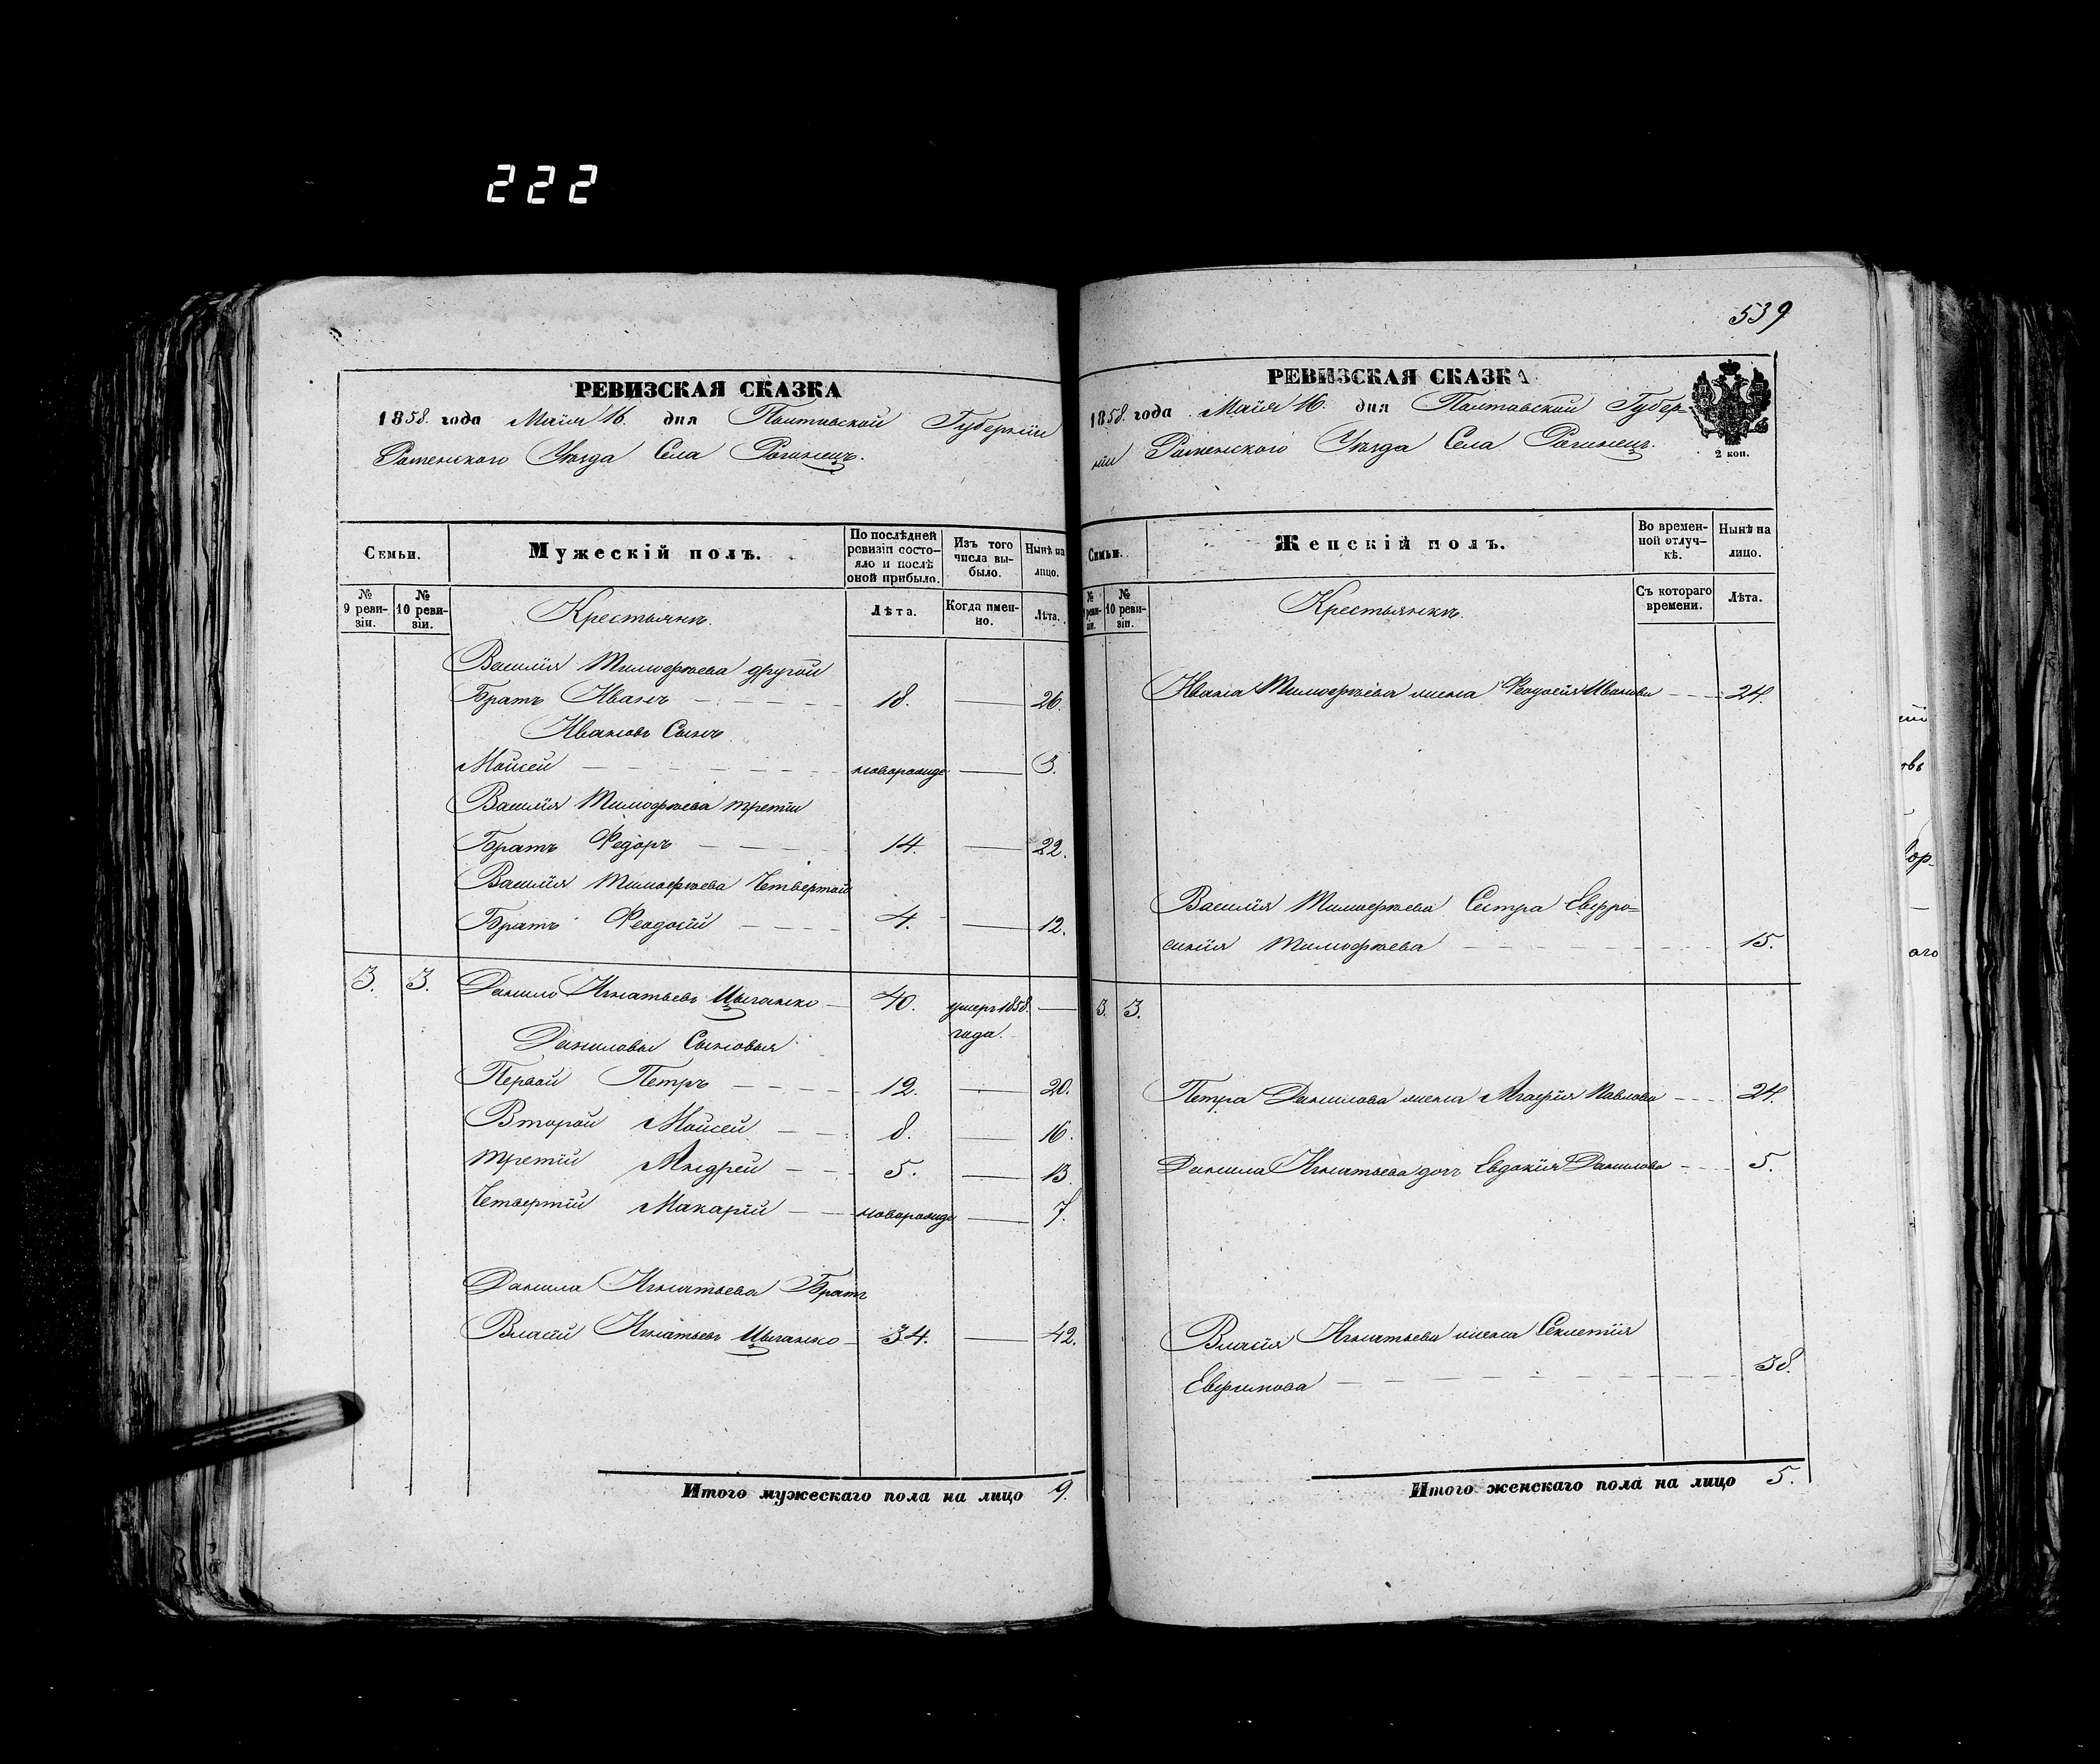 222
РЕВИЗСКАЯ СКАЗКА
1858. года Маія 16. дня Полтавской Губерніи
Роменскаго Уѣзда Села Рогинецъ.
Семьи.
Мужескій полъ.
По послѣдней ревизіи состояло и послѣ оной прибыло.
Изъ того числа выбыло.
Нынѣ на лицо.
№ 9 ревизіи.
№ 10 ревизіи.
Крестьянъ.
Лѣта.
Когда именно.
Лѣта.
Василія Тимофѣева другой
Братъ Иванъ 18. 26.
Ивановъ Сынъ
Мойсей новорожде 3.
Василія Тимофѣева третій
Братъ Федоръ 14. 22.
Василія Тимофѣева Четвертой
Братъ Феодосій 4. 12.
3. 3. Данило Игнатьевъ Цыганко 40. умеръ 1858.
года.
Даниловы Сыновья
Первой Петръ 12. 20.
Второй Мойсей 8. 16.
третій Андрей 5. 13.
Четвертій Макарій новорожде 7.
Данила Игнатьева Братъ
Власій Игнатьевъ Цыганко 34. 42.
Итого мужескаго пола на лицо 9.
539
РЕВИЗСКАЯ СКАЗКА
1858. года Маія 16. дня Полтавской Губер-
ніи Роменскаго Уѣзда Села Рогинецъ.
2 коп.
Семьи.
Женскій полъ.
Во временной отлучкѣ.
Нынѣ на лицо.
№ 9 ревизіи.
№ 10 ревизіи.
Крестьянкъ.
Съ котораго времени.
Лѣта.
Ивана Тимофѣева жена Феодосія Иванова 24.
Василія Тимофѣева Сестра Евфро=
синія Тимофѣева 15.
3. 3.
Петра Данилова жена Агафія Павлова 24.
Данила Игнатьева дочь Евдокія Данилова 5.
Власія Игнатьева жена Секлетія
Евфимова 38.
Итого женскаго пола на лицо 5.